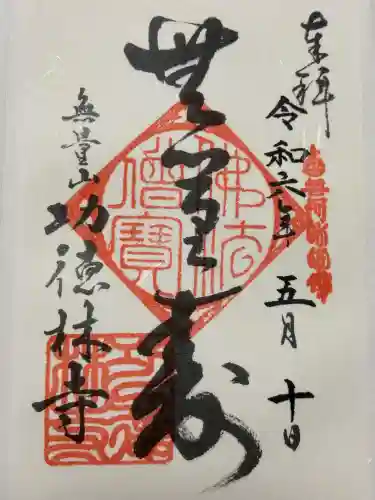 奉拝
令和六年 五月 十日
無量寿
佛法僧寶
無量山 功徳林寺